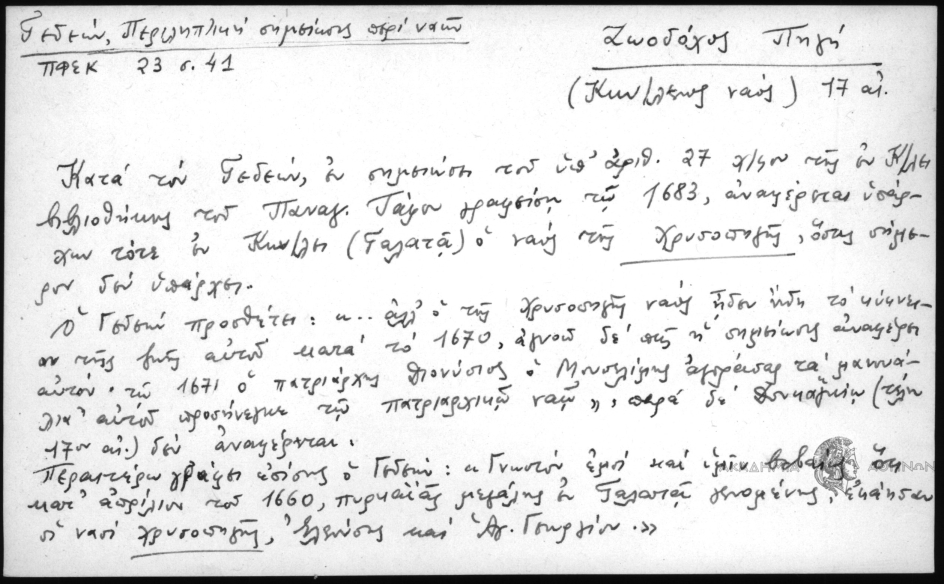 Γεδεών, Περιληπτική σημείωσις περί ναών
ΠΦΕΚ 23 σ. 41
Ζωοδόχος Πηγή
(Κων/λεως ναός) 17 αἰ.
Κατά τόν Γεδεών, ἐν σημειώσει τοῦ ὑπ' ἀριθ. 27 χ/φου τῆς ἐν Κ/λει
βιβλιοθήκης τοῦ Παναγ. Τάφου γραφείσῃ τῷ 1683, ἀναφέρεται ὑπάρ-
χων τότε ἐν Κων/λει (Γαλατᾷ) ὁ ναός τῆς Χρυσοπηγῆς, ὅστις σήμε-
ρον δέν ὑπάρχει.
Ὁ Γεδεών προσθέτει: «.. ἀλλ' ὁ τῆς Χρυσοπηγῆς ναός ᾖδεν ἤδη τό κύκνει-
ον τῆς ζωῆς αὐτοῦ κατά τό 1670, ἀγνοῶ δέ πῶς ἡ σημείωσις ἀναφέρει
αὐτόν· τῷ 1671 ὁ πατριάρχης Διονύσιος ὁ Μουσελίμης ἀγοράσας τά μανουά-
λια αὐτοῦ προσήνεγκε τῷ πατριαρχικῷ ναῷ», παρά δέ (τέλη
17ου αἰ.) δέν ἀναφέρεται.
Περαιτέρω γράφει ἐπίσης ὁ Γεδεών: «Γνωστόν ἐμοί καί ὑμῖν βεβαίως ὅτι
κατ' ἀπρίλιον τοῦ 1660, πυρκαϊᾶς μεγάλης ἐν Γαλατᾷ γενομένης, ἐκάησαν
οἱ ναοί Χρυσοπηγῆς, Ἐλεούσης καί Ἁγ. Γεωργίου.»
ΑΚΑΔΗΜΙΑ ΑΘΗΝΩΝ